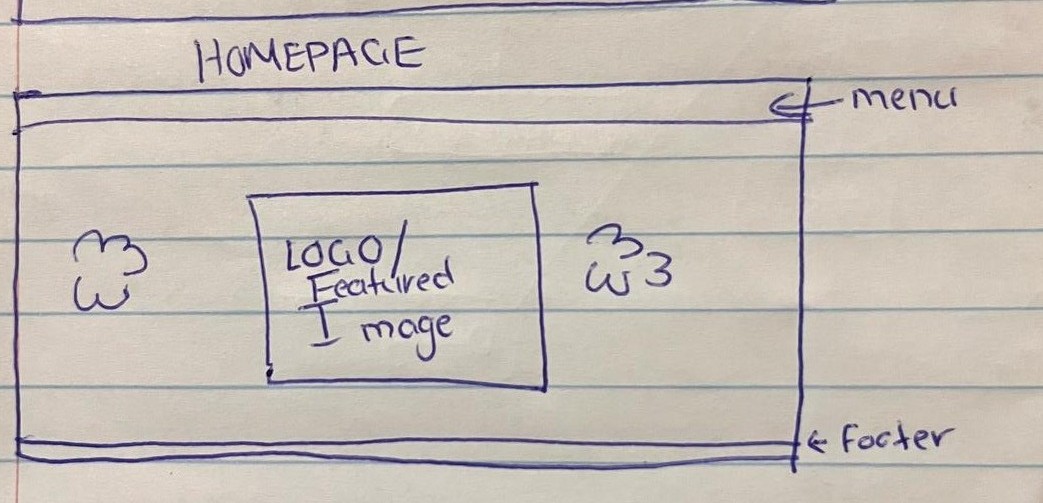 HOMEPAGE
← menu
LOGO/
Featured
Image
← footer